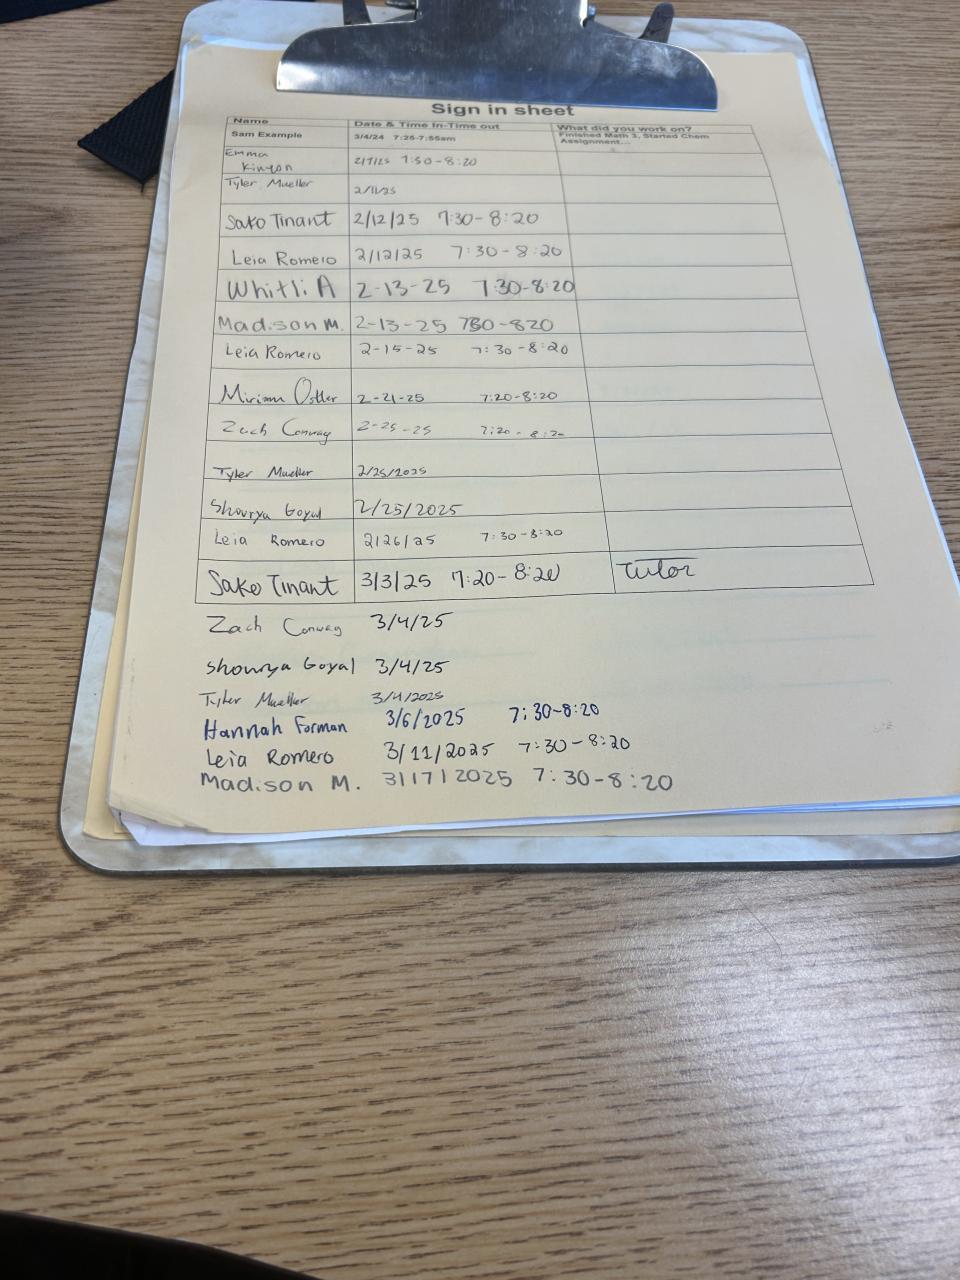 Sign in sheet
Name Date & Time In-Time out What did you work on?
Sam Example 3/4/24 7:25-7:55am Finished Math 3, Started Chem
Assignment...
Emma
Kinyon 2/7/25 7:50-8:20
Tyler Mueller 2/11/25
Sako Tinant 2/12/25 7:30-8:20
Leia Romero 2/12/25 7:30-8:20
Whitli A 2-13-25 7:30-8:20
Madison M. 2-13-25 730-820
Leia Romero 2-15-25 7:30-8:20
Miriam Ostler 2-21-25 7:20-8:20
Zach Conway 2-25-25 7:20-8:20
Tyler Mueller 2/25/2025
Shourya Goyal 2/25/2025
Leia Romero 2/26/25 7:30-8:20
Sako Tinant 3/3/25 7:20-8:20 Tutor
Zach Conway 3/4/25
Shourya Goyal 3/4/25
Tyler Mueller 3/4/2025
Hannah Forman 3/6/2025 7:30-8:20
Leia Romero 3/11/2025 7:30-8:20
Madison M. 3/17/2025 7:30-8:20